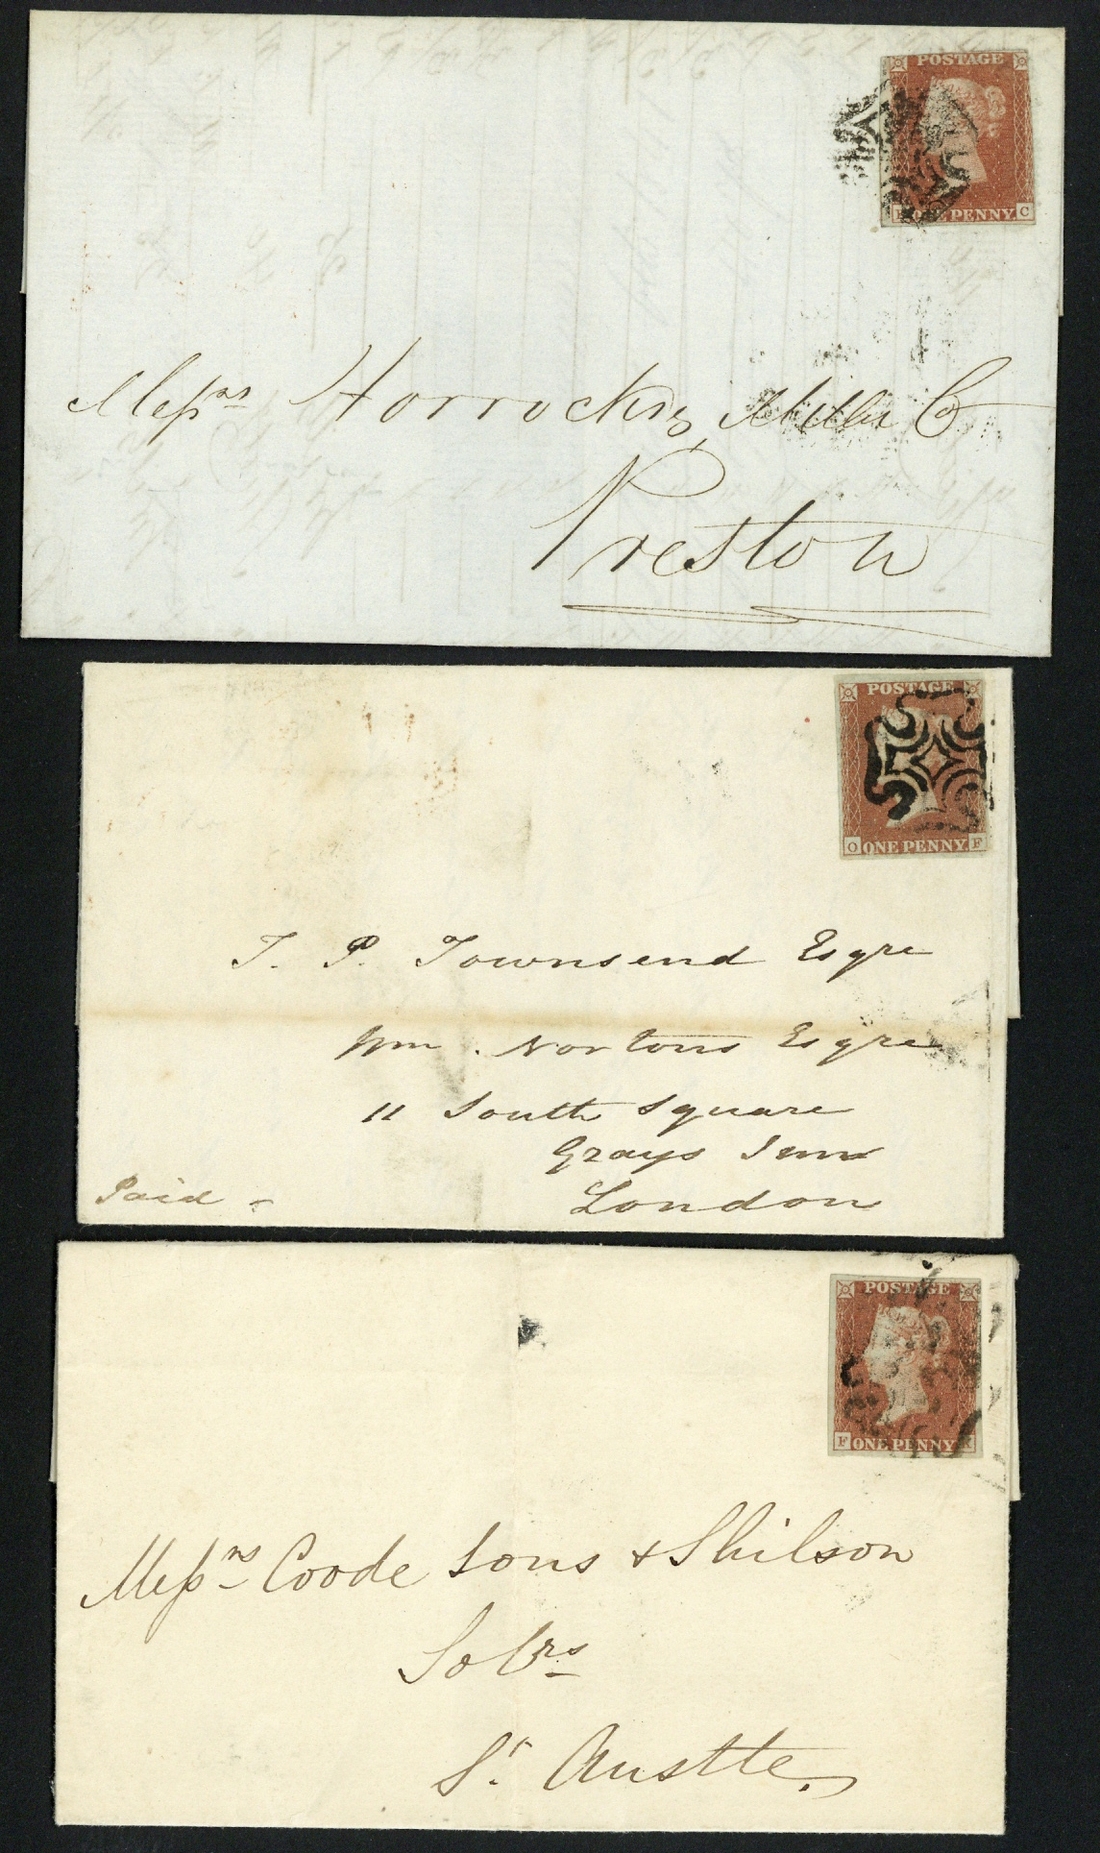 POSTAGE
ONE PENNY C
Messrs Horrockses, Miller & Co
Preston
POSTAGE
O ONE PENNY F
T. P. Townsend Esqre
Wm. Nortons Esqre
11 South Square
Grays Inn
London
Paid
POSTAGE
F ONE PENNY
Messrs Coode Sons & Shilson
Solrs
St. Austle